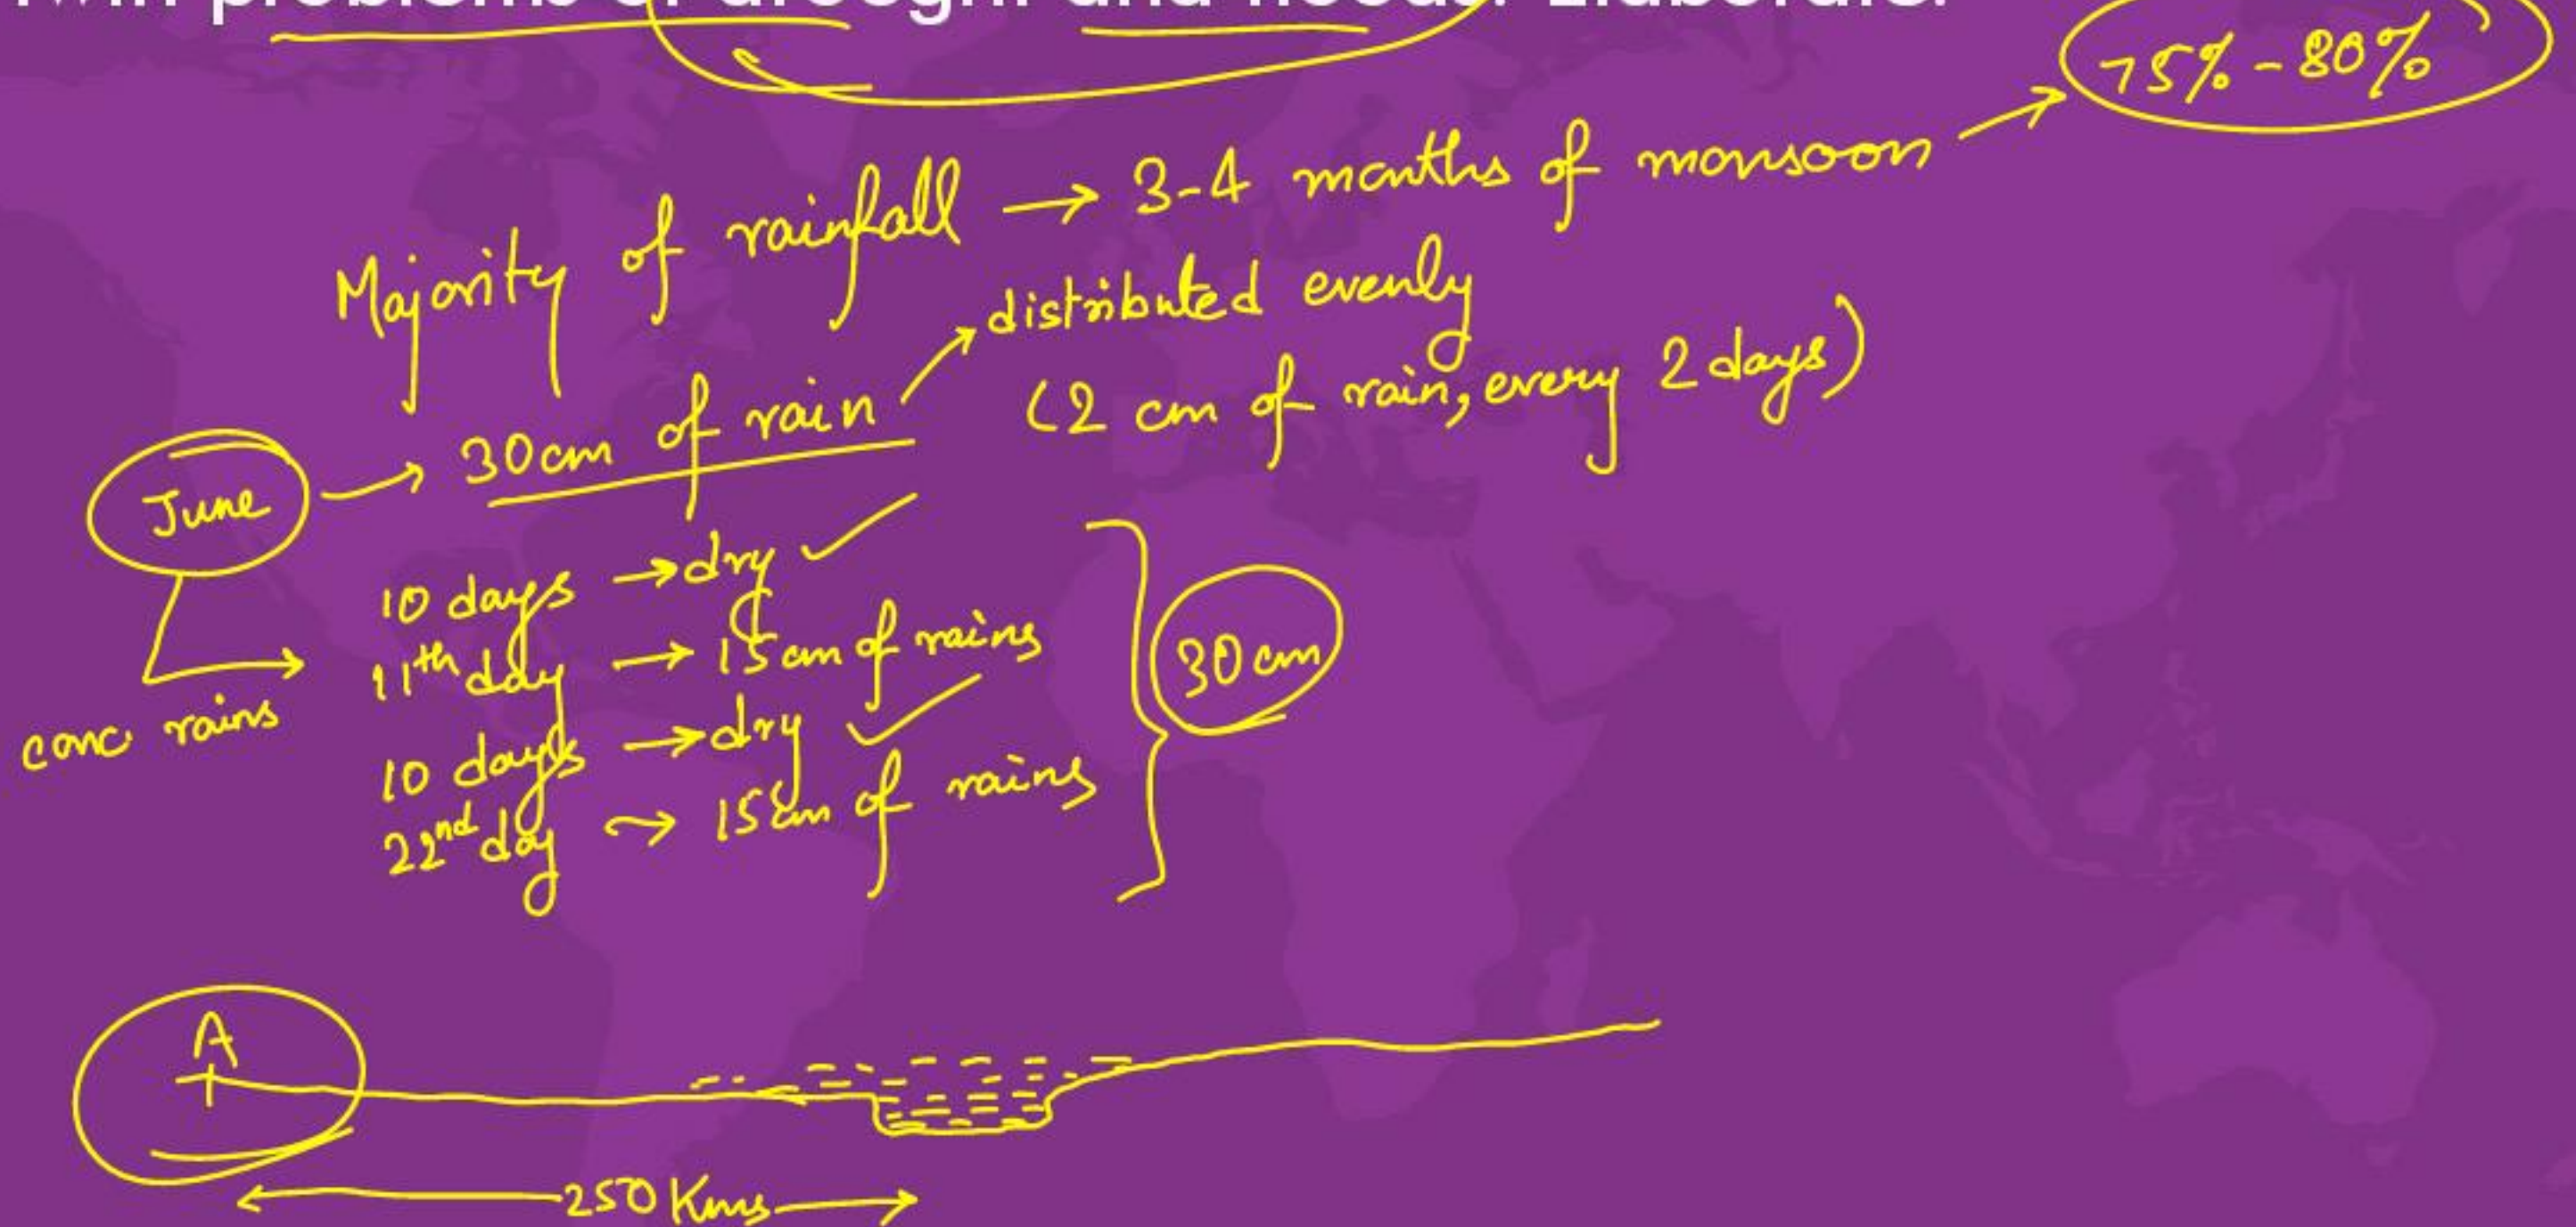 Twin problems of drought and floods. Elaborate.
75% - 80%
Majority of rainfall → 3-4 months of monsoon →
June → 30cm of rain → distributed evenly
(2 cm of rain, every 2 days)
conc rains
10 days → dry ✓
11th day → 15cm of rains
10 days → dry ✓
22nd day → 15cm of rains
30 cm
A
250 Kms